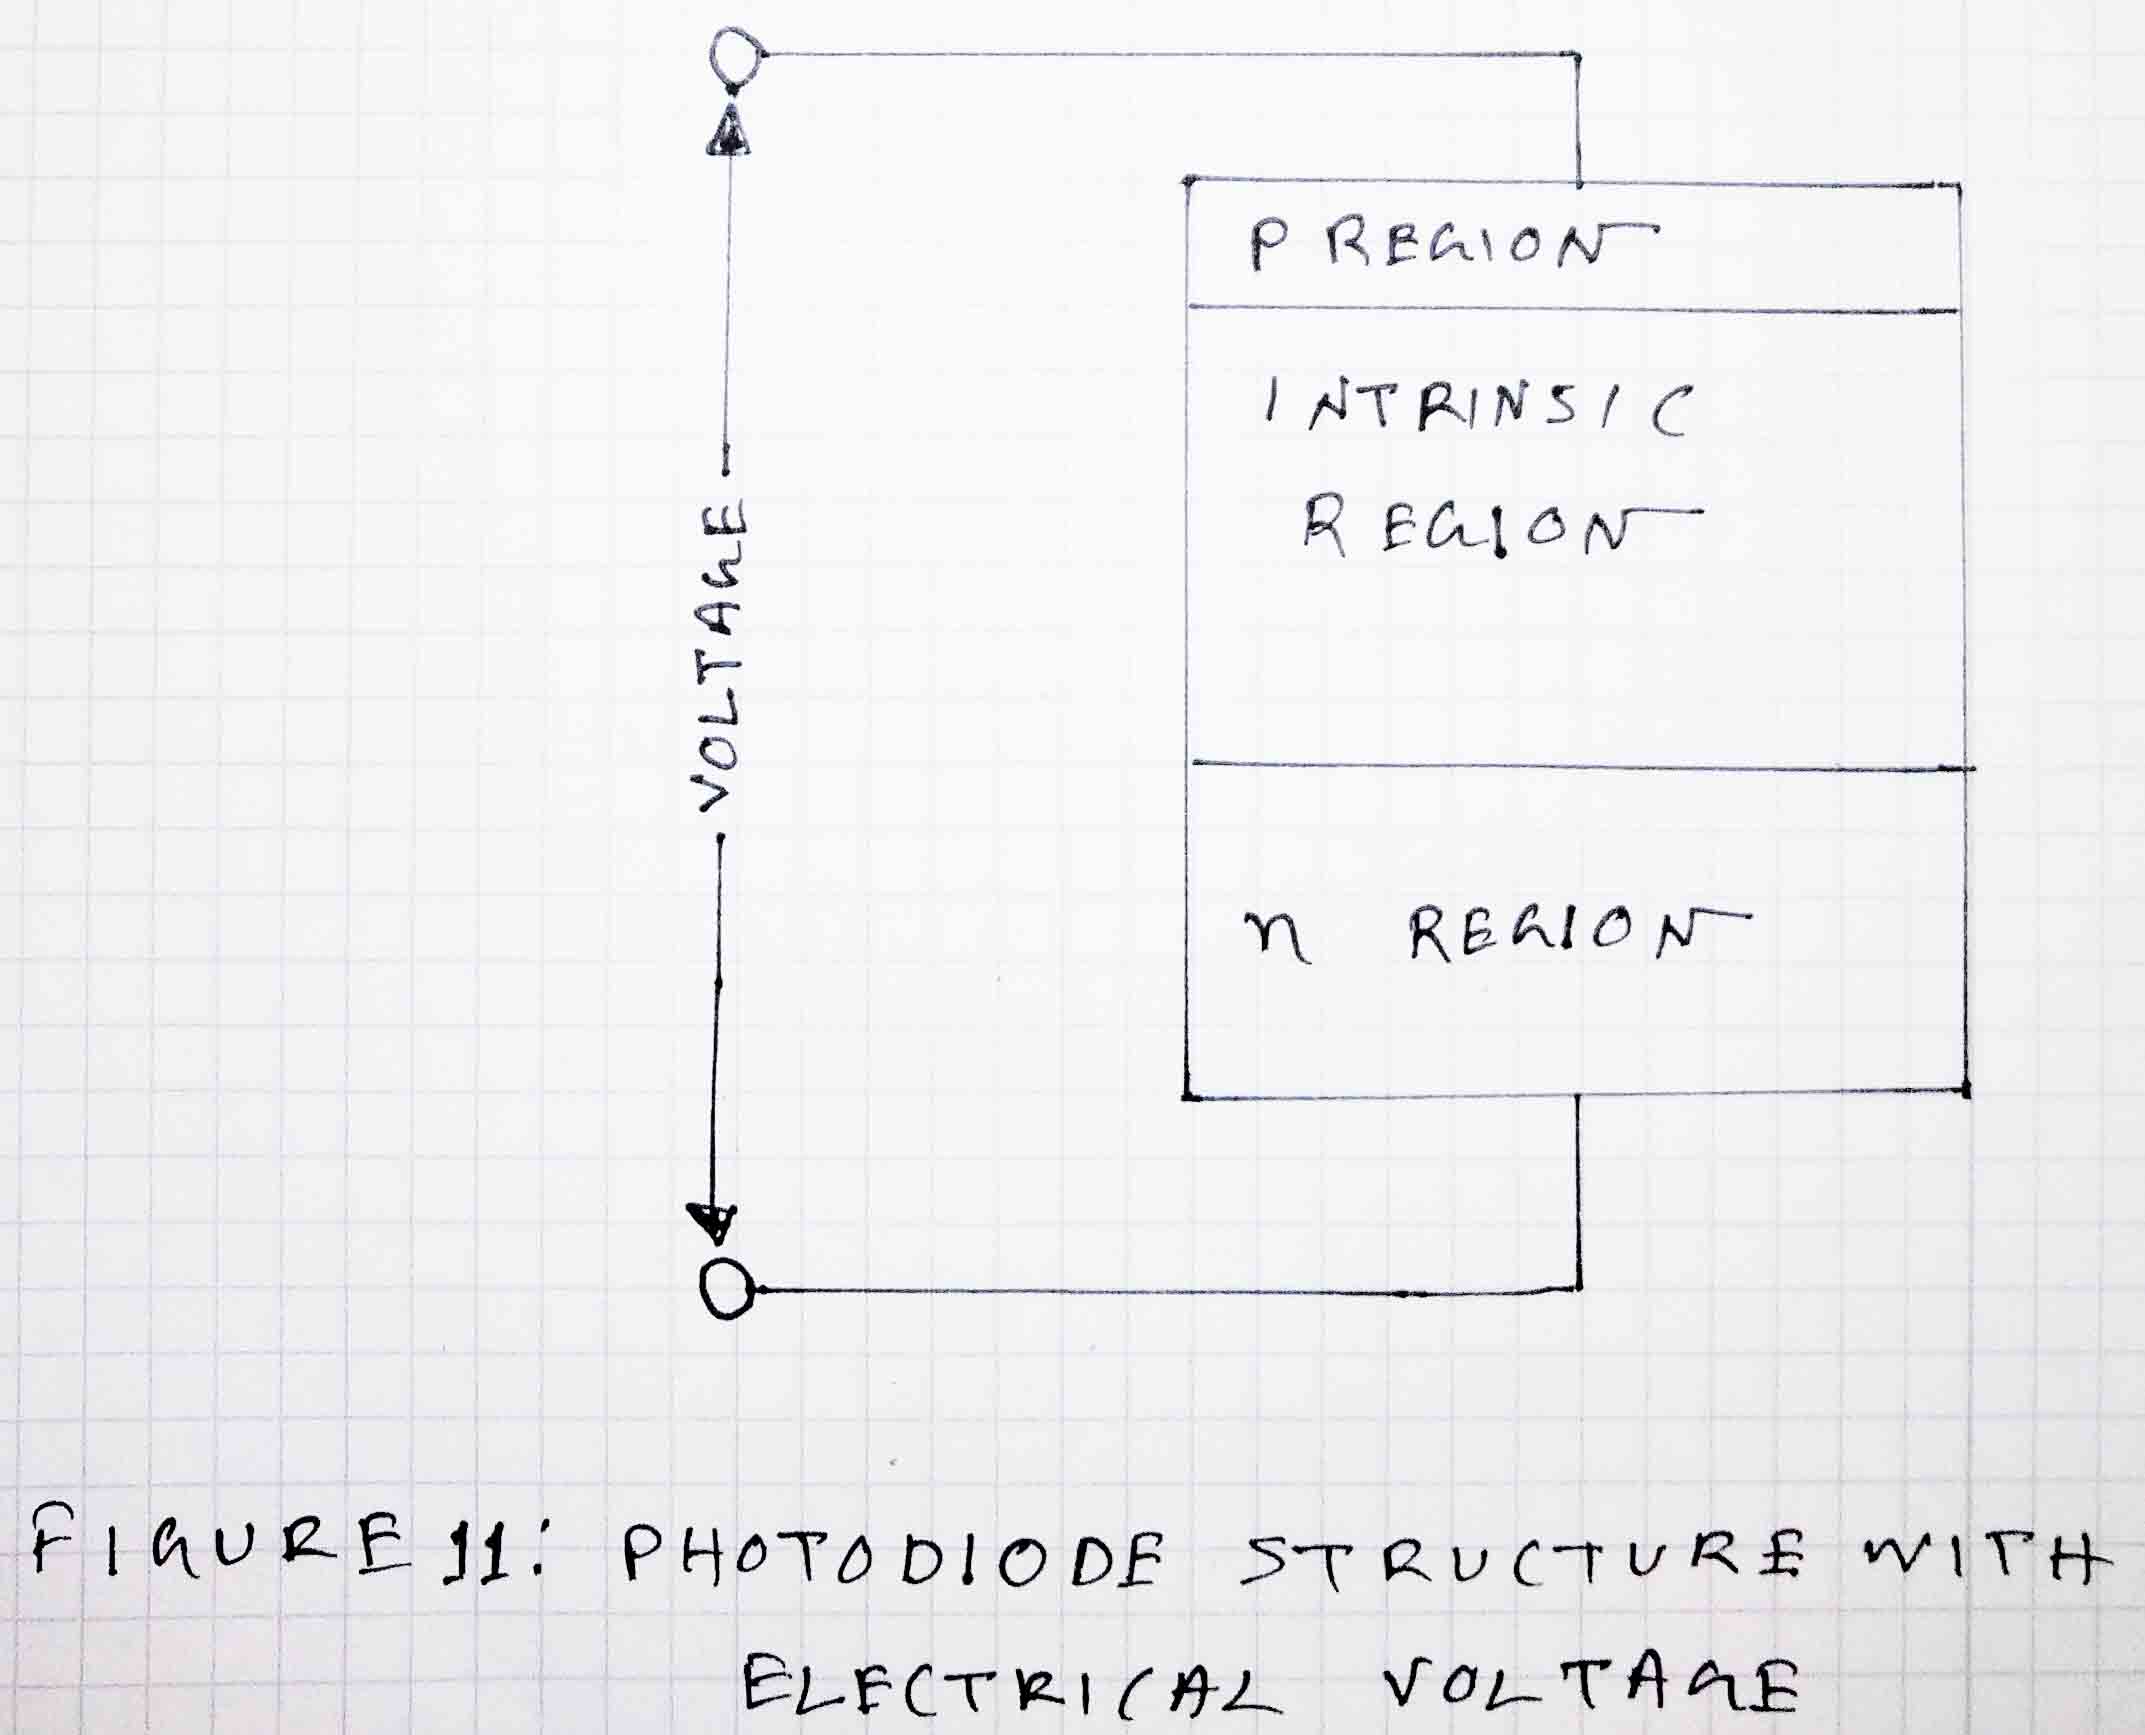 P REGION
INTRINSIC
REGION
VOLTAGE
n REGION
FIGURE 11: PHOTODIODE STRUCTURE WITH
ELECTRICAL VOLTAGE